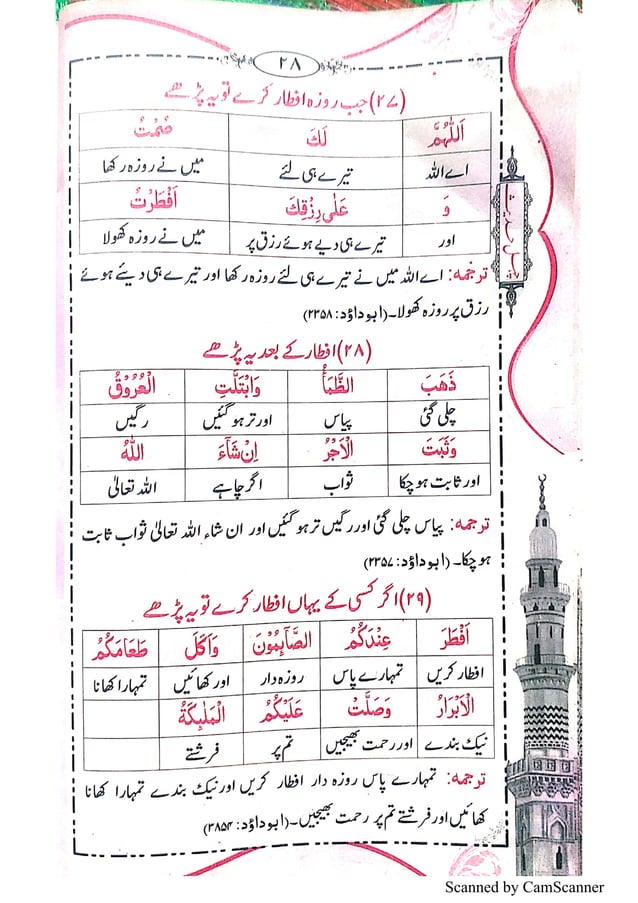 ۲۸
(۲۷) جب روزہ افطار کرے تو یہ پڑھے
اَللّٰهُمَّ لَكَ صُمْتُ
اے اللہ تیرے ہی لئے میں نے روزہ رکھا
وَ عَلٰى رِزْقِكَ اَفْطَرْتُ
اور تیرے ہی دیے ہوئے رزق پر میں نے روزہ کھولا
ترجمہ: اے اللہ میں نے تیرے ہی لئے روزہ رکھا اور تیرے ہی دیئے ہوئے
رزق پر روزہ کھولا۔ (ابوداؤد: ۲۳۵۸)
(۲۸) افطار کے بعد یہ پڑھے
ذَهَبَ الظَّمَأُ وَابْتَلَّتِ الْعُرُوْقُ
چلی گئی پیاس اور تر ہوگئیں رگیں
وَثَبَتَ الْاَجْرُ اِنْ شَآءَ اللّٰهُ
اور ثابت ہوچکا ثواب اگر چاہے اللہ تعالیٰ
ترجمہ: پیاس چلی گئی اور رگیں تر ہوگئیں اور ان شاء اللہ تعالیٰ ثواب ثابت
ہوچکا۔ (ابوداؤد: ۲۳۵۷)
(۲۹) اگر کسی کے یہاں افطار کرے تو یہ پڑھے
اَفْطَرَ عِنْدَكُمُ الصَّآئِمُوْنَ وَاَكَلَ طَعَامَكُمُ
افطار کریں تمہارے پاس روزہ دار اور کھائیں تمہارا کھانا
الْاَبْرَارُ وَصَلَّتْ عَلَيْكُمُ الْمَلٰٓئِكَةُ
نیک بندے اور رحمت بھیجیں تم پر فرشتے
ترجمہ: تمہارے پاس روزہ دار افطار کریں اور نیک بندے تمہارا کھانا
کھائیں اور فرشتے تم پر رحمت بھیجیں۔ (ابوداؤد: ۳۸۵۴)
چہل حدیث
Scanned by CamScanner